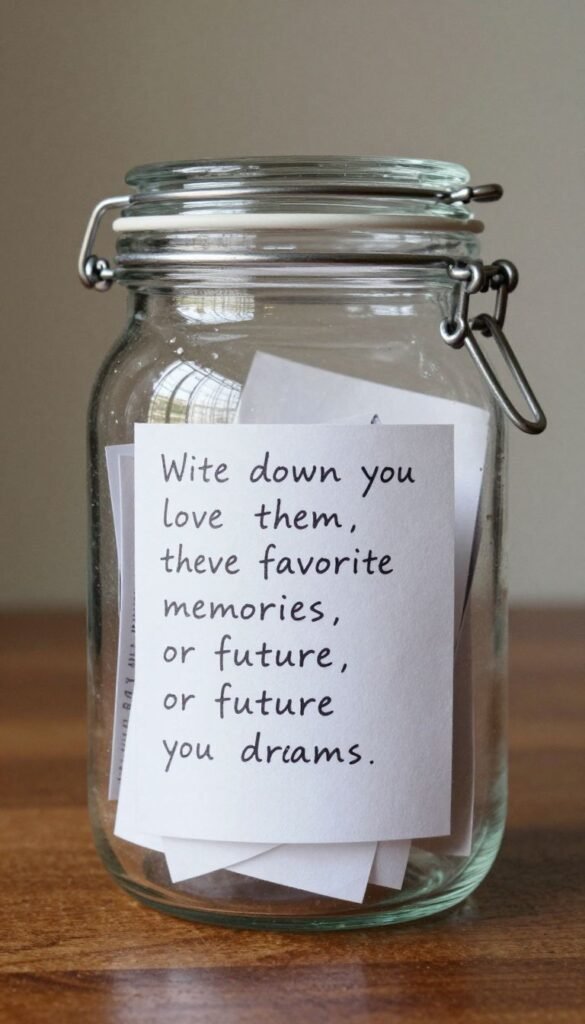 Wite down you
love them,
theve favorite
memories,
or future,
or future
you drcams.